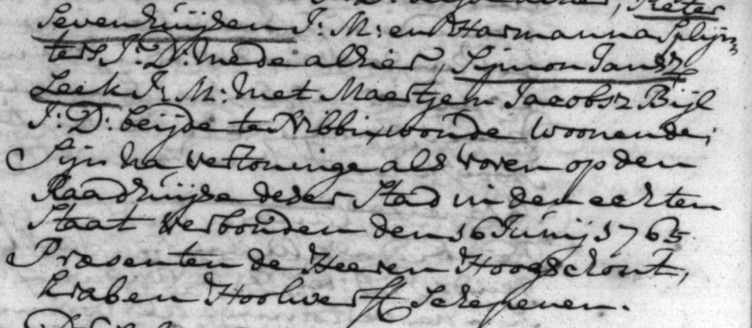 Pieter
Sevenhuijsen J: M: en Harmanna Splijn,,
ters J: D: mede alhier, Sijmon Jansz
Leek J: M: met Maertjen Jacobsz Bijl
J: D: beijde te Nibbixwoude woonende;
Sijn na vertoninge als voren op den
Raadhuijse deser Stad in den echten
Staat verbonden den 16 Junij 1765.
Præsenten de Heeren Hoogschout,
Kraben Hoolwerf Schepenen.